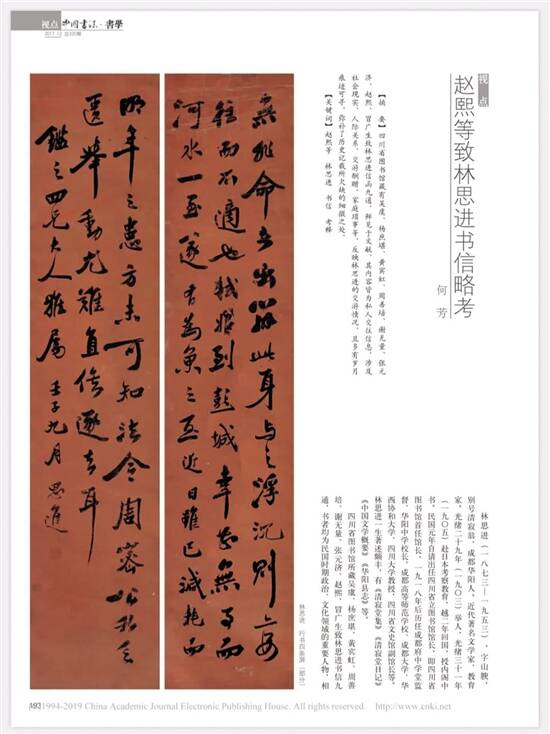 视点
中国书法·书学
2017.12 总320期
视点
赵熙等致林思进书信略考
何芳
【摘 要】四川省图书馆藏有吴虞、杨庶堪、黄宾虹、周善培、谢无量、张元
济、赵熙、冒广生致林思进信函九通，鲜见于文献，其内容皆为私人交往信息，涉及
社会现实、人际关系、交游酬赠、家庭琐事等，反映林思进的交游情况，且多有岁月
痕迹可寻，弥补了历史记载所欠缺的细微之处。
【关键词】赵熙等 林思进 书信 考释
林思进（一八七三—一九五三），字山腴，
别号清寂翁，成都华阳人，近代著名文学家、教育
家。光绪二十九年（一九〇三）举人，光绪三十一年
（一九〇五）赴日本考察教育，越二年回国，授内阁中
书，民国元年自请出任四川省立图书馆馆长，即四川省
图书馆首任馆长，一九一八年后历任成都府中学堂监
督，华阳中学校长，成都高等师范学校、成都大学、华
西协和大学、四川大学教授，四川省文史馆副馆长等。
林思进一生著述颇丰，有《清寂堂集》《清寂堂日记》
《中国文学概要》《华阳县志》等。
四川省图书馆所藏吴虞、杨庶堪、黄宾虹、周善
培、谢无量、张元济、赵熙、冒广生致林思进书信九
通，书者均为民国时期政治、文化领域的重要人物，相
无非命者出处此身与之浮沉则安
往而不适也轼想到彭城幸无事而
河水一至遂有为鱼之至近日虽已减耗而
明年之患方未可知法令周密公私之
遗举动尤难直俟逐去耳
鉴之四兄大人雅属 壬子九月 思进
林思进 行书四条屏（部分）
(C)1994-2019 China Academic Journal Electronic Publishing House. All rights reserved. http://www.cnki.net